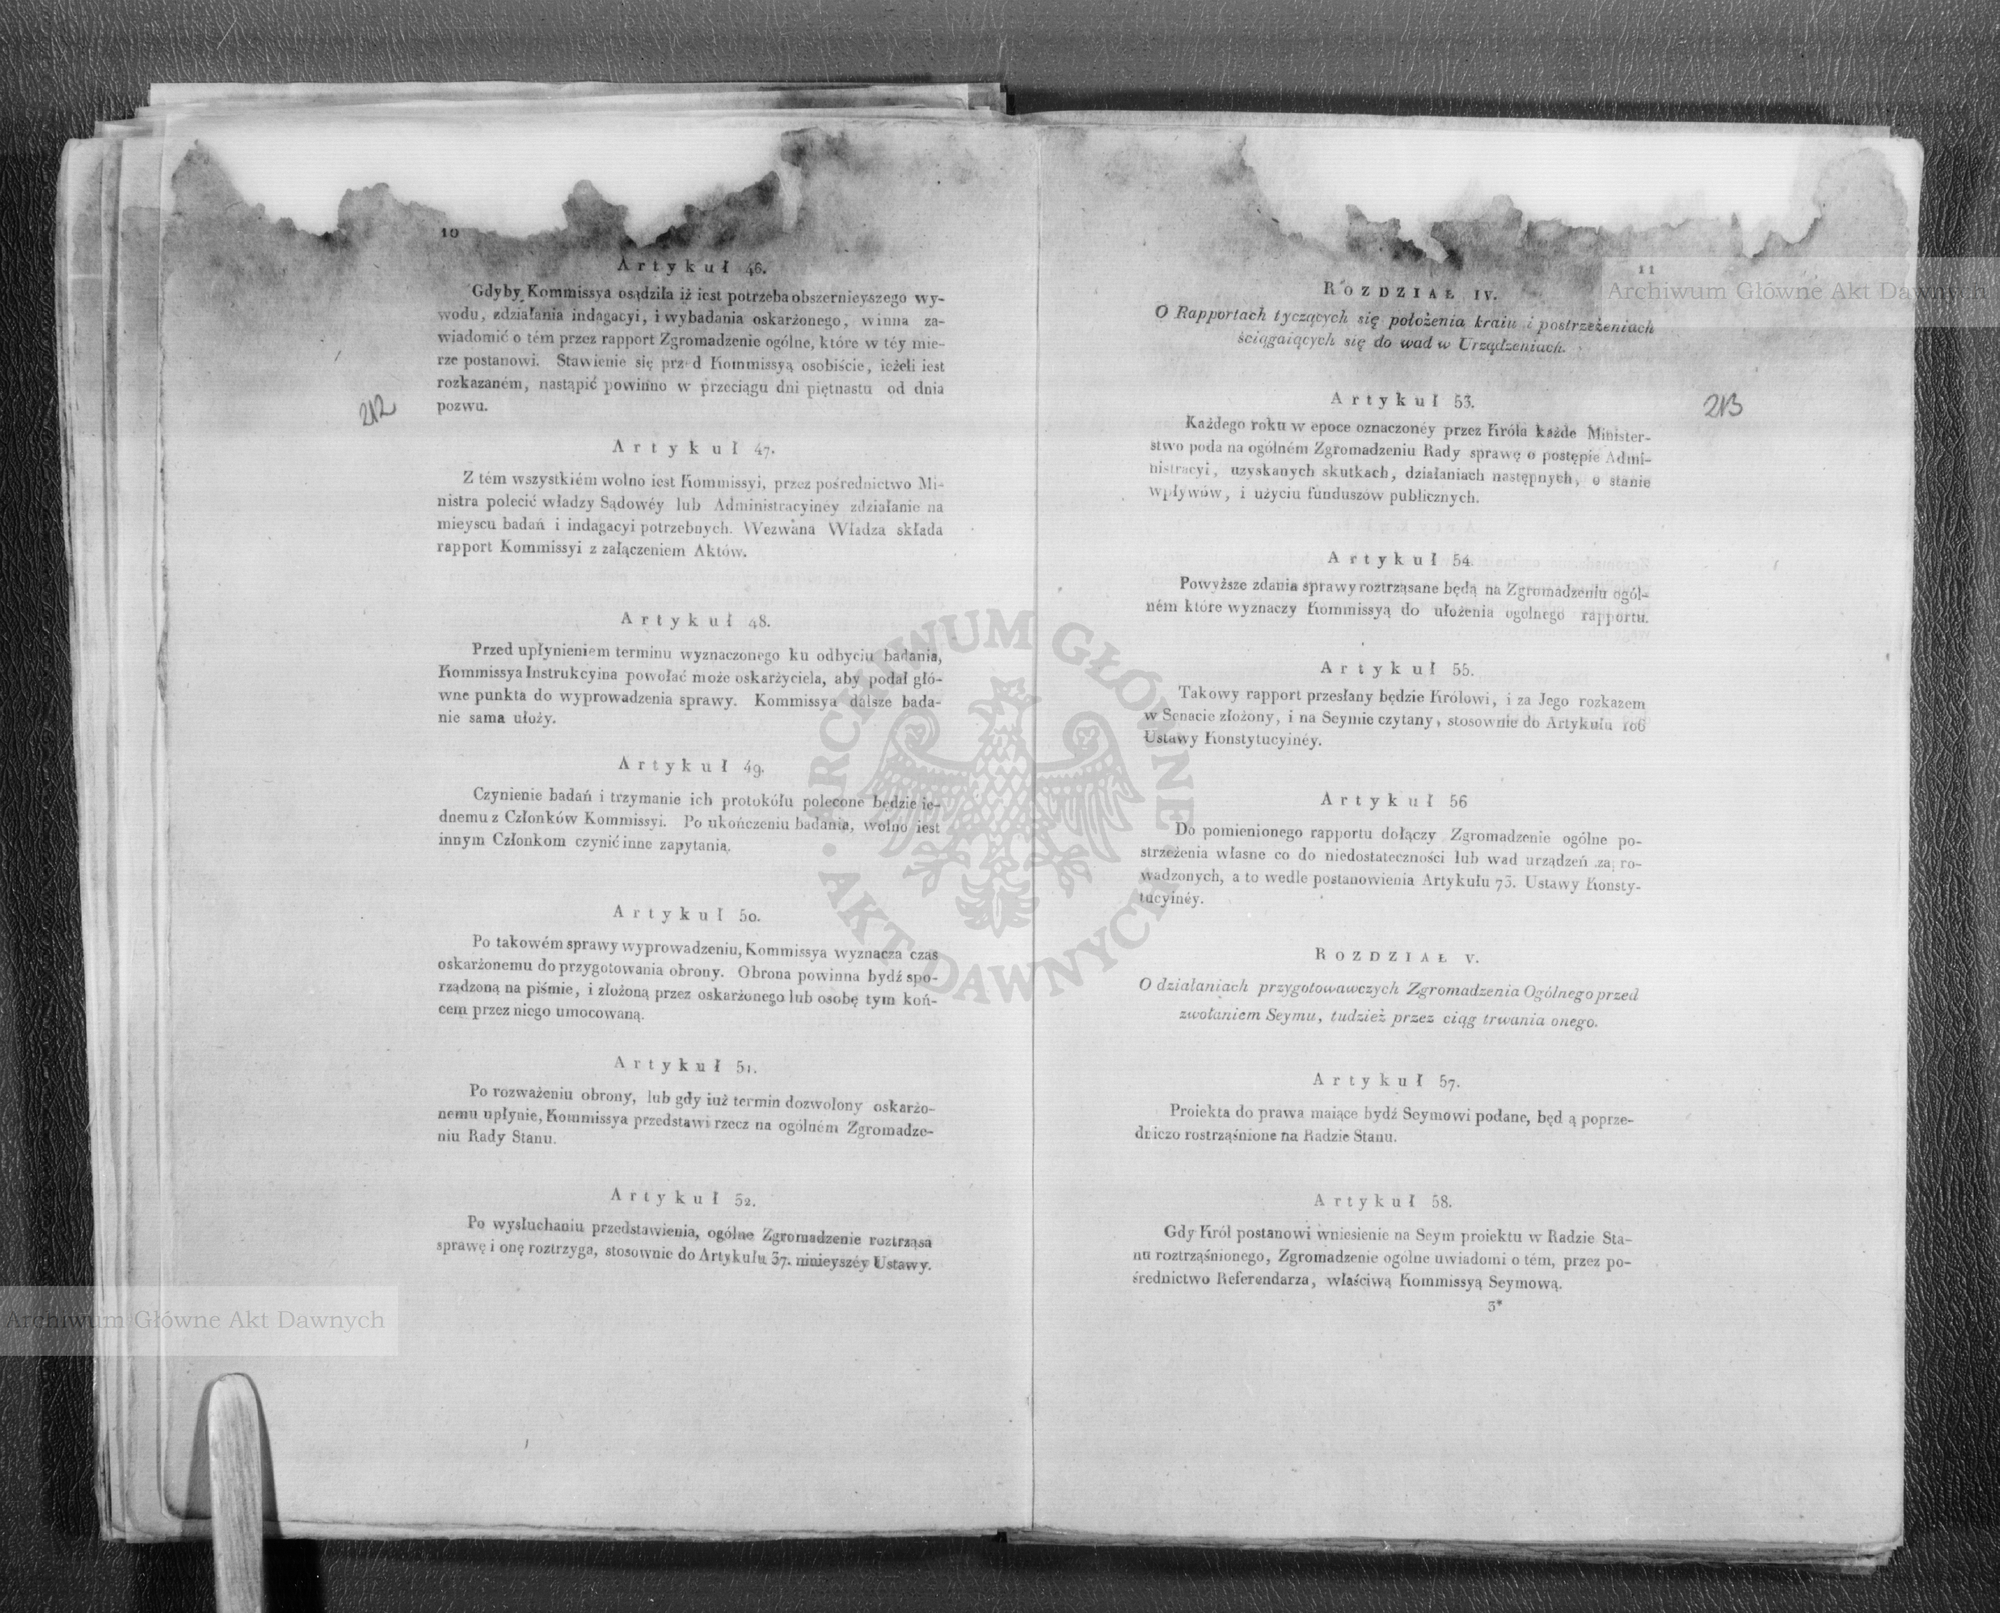 10
Artykuł 46.
Gdyby Kommissya osądziła iż iest potrzeba obszernieyszego wy-
wodu, zdziałania indagacyi, i wybadania oskarżonego, winna za-
wiadomić o tém przez rapport Zgromadzenie ogólne, które w téy mie-
rze postanowi. Stawienie się przed Kommissyą osobiście, ieżeli iest
rozkazaném, nastąpić powinno w przeciągu dni piętnastu od dnia
pozwu.
212
Artykuł 47.
Z tém wszystkiém wolno iest Kommissyi, przez pośrednictwo Mi-
nistra polecić władzy Sądowéy lub Administracyinéy zdziałanie na
mieyscu badań i indagacyi potrzebnych. Wezwana Władza składa
rapport Kommissyi z załączeniem Aktów.
Artykuł 48.
Przed upłynieniem terminu wyznaczonego ku odbyciu badania,
Kommissya Instrukcyina powołać może oskarżyciela, aby podał głó-
wne punkta do wyprowadzenia sprawy. Kommissya dalsze bada-
nie sama ułoży.
Artykuł 49.
Czynienie badań i trzymanie ich protokółu polecone będzie ie-
dnemu z Członków Kommissyi. Po ukończeniu badania, wolno iest
innym Członkom czynić inne zapytania.
Artykuł 50.
Po takowém sprawy wyprowadzeniu, Kommissya wyznacza czas
oskarżonemu do przygotowania obrony. Obrona powinna bydź spo-
rządzoną na piśmie, i złożoną przez oskarżonego lub osobę tym koń-
cem przez niego umocowaną.
Artykuł 51.
Po rozważeniu obrony, lub gdy iuż termin dozwolony oskarżo-
nemu upłynie, Kommissya przedstawi rzecz na ogólném Zgromadze-
niu Rady Stanu.
Artykuł 52.
Po wysłuchaniu przedstawienia, ogólne Zgromadzenie roztrząsa
sprawę i onę roztrzyga, stosownie do Artykułu 37. ninieyszéy Ustawy.
11
ROZDZIAŁ IV.
O Rapportach tyczących się położenia kraiu i postrzeżeniach
ściągaiących się do wad w Urządzeniach.
Artykuł 53.
213
Każdego roku w epoce oznaczonéy przez Króla każde Minister-
stwo poda na ogólném Zgromadzeniu Rady sprawę o postępie Admi-
nistracyi, uzyskanych skutkach, działaniach następnych, o stanie
wpływów, i użyciu funduszów publicznych.
Artykuł 54.
Powyższe zdania sprawy roztrząsane będą na Zgromadzeniu ogól-
ném które wyznaczy Kommissyą do ułożenia ogolnego rapportu.
Artykuł 55.
Takowy rapport przesłany będzie Królowi, i za Jego rozkazem
w Senacie złożony, i na Seymie czytany, stosownie do Artykułu 106
Ustawy Konstytucyinéy.
Artykuł 56
Do pomienionego rapportu dołączy Zgromadzenie ogólne po-
strzeżenia własne co do niedostateczności lub wad urządzeń zapro-
wadzonych, a to wedle postanowienia Artykułu 73. Ustawy Konsty-
tucyinéy.
ROZDZIAŁ V.
O działaniach przygotowawczych Zgromadzenia Ogólnego przed
zwołaniem Seymu, tudzież przez ciąg trwania onego.
Artykuł 57.
Proiekta do prawa maiące bydź Seymowi podane, będ ą poprze-
dniczo rostrząśnione na Radzie Stanu.
Artykuł 58.
Gdy Król postanowi wniesienie na Seym proiektu w Radzie Sta-
nu roztrząśnionego, Zgromadzenie ogólne uwiadomi o tém, przez po-
średnictwo Referendarza, właściwą Kommissyą Seymową.
3*
Archiwum Główne Akt Dawnych
Archiwum Główne Akt Dawnych
ARCHIWUM GŁÓWNE • AKT DAWNYCH •